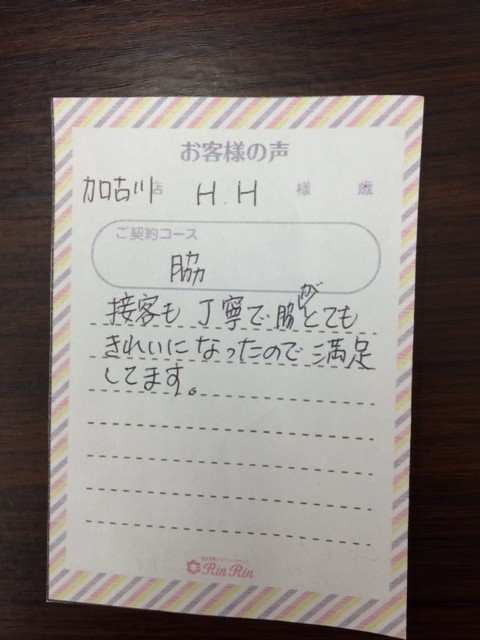 お客様の声
加古川店 H.H 様 歳
ご契約コース
脇
接客も丁寧で脇がとても
きれいになったので満足
してます。
RinRin